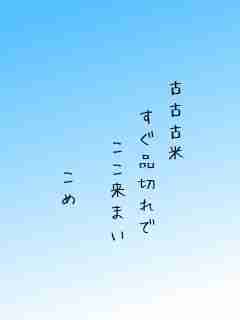 古古古米
すぐ品切れで
ここ来まい
こめ